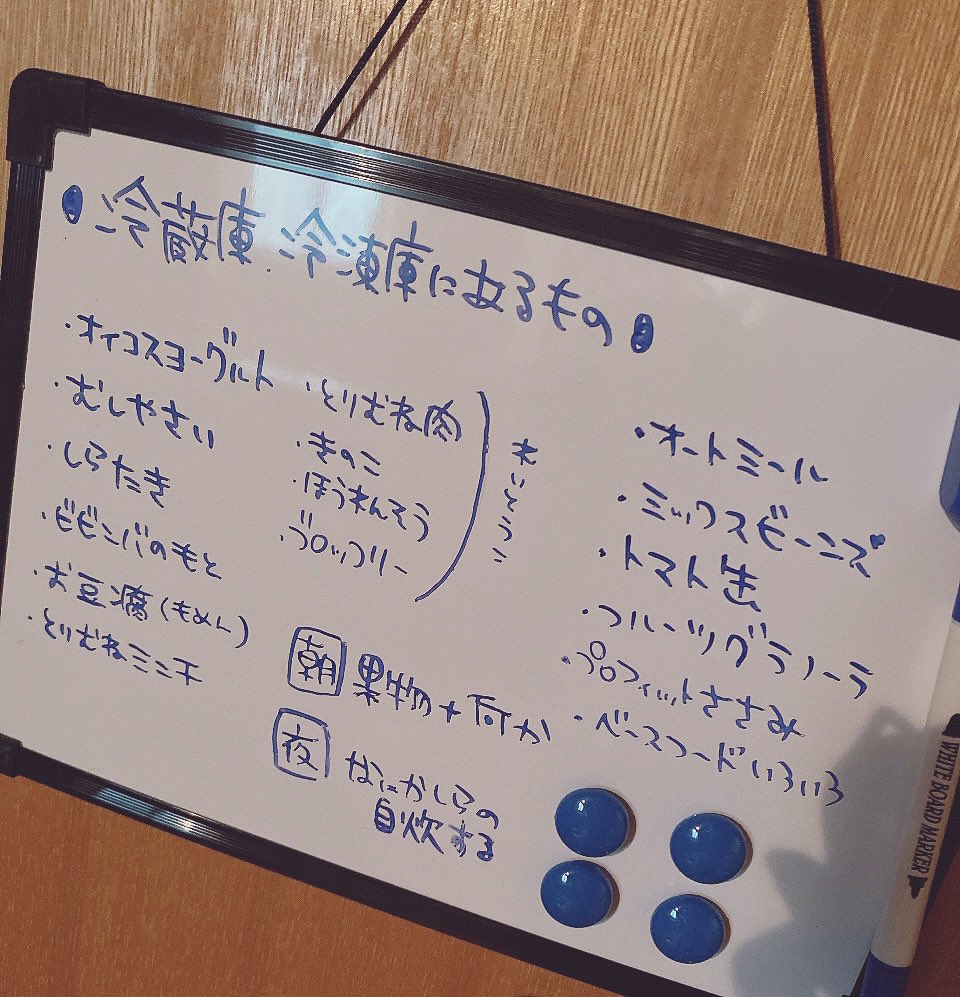 冷蔵庫 冷凍庫にあるもの
・オイコスヨーグルト
・むしやさい
・しらたき
・ビビンバのもと
・お豆腐(もめん)
・とりむねミンチ
・とりむね肉
・きのこ
・ほうれんそう
・ブロッコリー
れいとうこ
・オートミール
・ミックスビーンズ
・トマト缶
・フルーツグラノーラ
・プロフィットささみ
・ベースフードいろいろ
朝 果物+何か
夜 なにかしらの
自炊する
WHITE BOARD MARKER